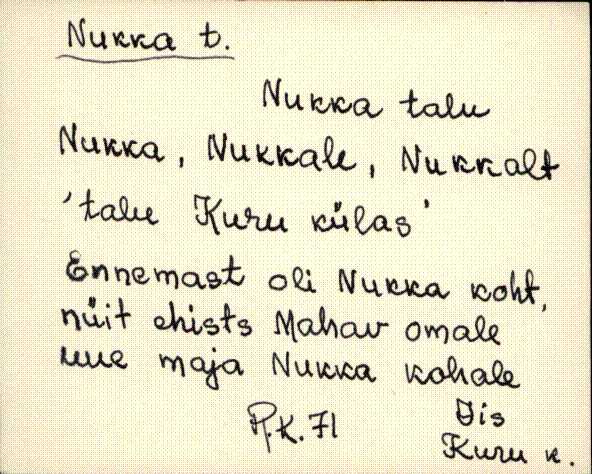 Nukka t.
Nukka talu
Nukka, Nukkale, Nukkalt
'talu Kuru külas'
Ennemast oli Nukka koht,
nüit ehists Mahav omale
uue maja Nukka kohale
R.K. 71
Iis
Kuru k.